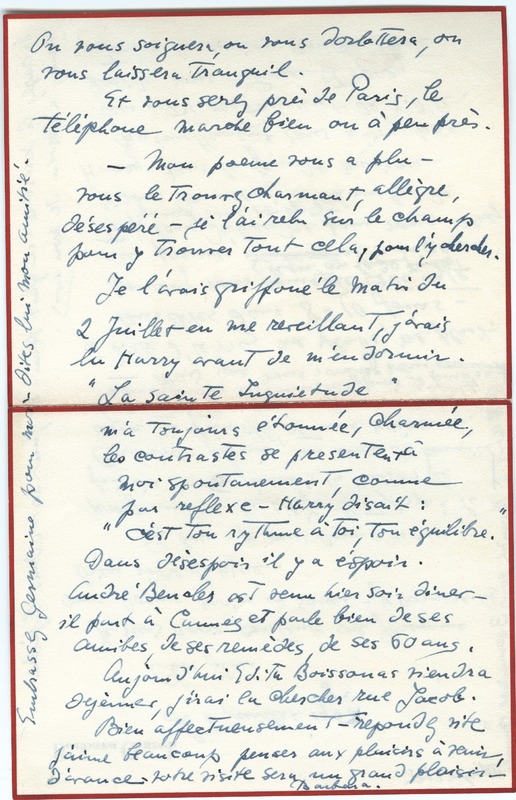 On vous soignera, on vous dorlottera, on
vous laissera tranquil.
Et vous serez près de Paris, le
téléphone marche bien ou à peu près.
— Mon poème vous a plu —
vous le trouvez charmant, allègre,
désespéré — je l'ai relu sur le champ
pour y trouver tout cela, pour l'y chercher.
Je l'avais griffoné le matin du
2 Juillet en me reveillant, j'avais
lu Harry avant de m'endormir.
"La Sainte Inquiétude"
m'a toujours étonnée, charmée,
les contrastes se presentent à
moi spontanement, comme
par reflexe — Harry disait :
"c'est ton rythme à toi, ton équilibre."
Dans désespoir il y a espoir.
André Beucler est venu hier soir diner —
il part à Cannes et parle bien de ses
amibes, de ses remèdes, de ses 60 ans.
Aujourd'hui Edita Boissonas viendra
dejeuner, j'irai la chercher rue Jacob.
Bien affectueusement — répondez vite
j'aime beaucoup penser aux plaisirs à venir,
d'avance — votre visite sera un grand plaisir —
Barbara.
Embrassez Germaine pour moi — dites lui mon amitié.